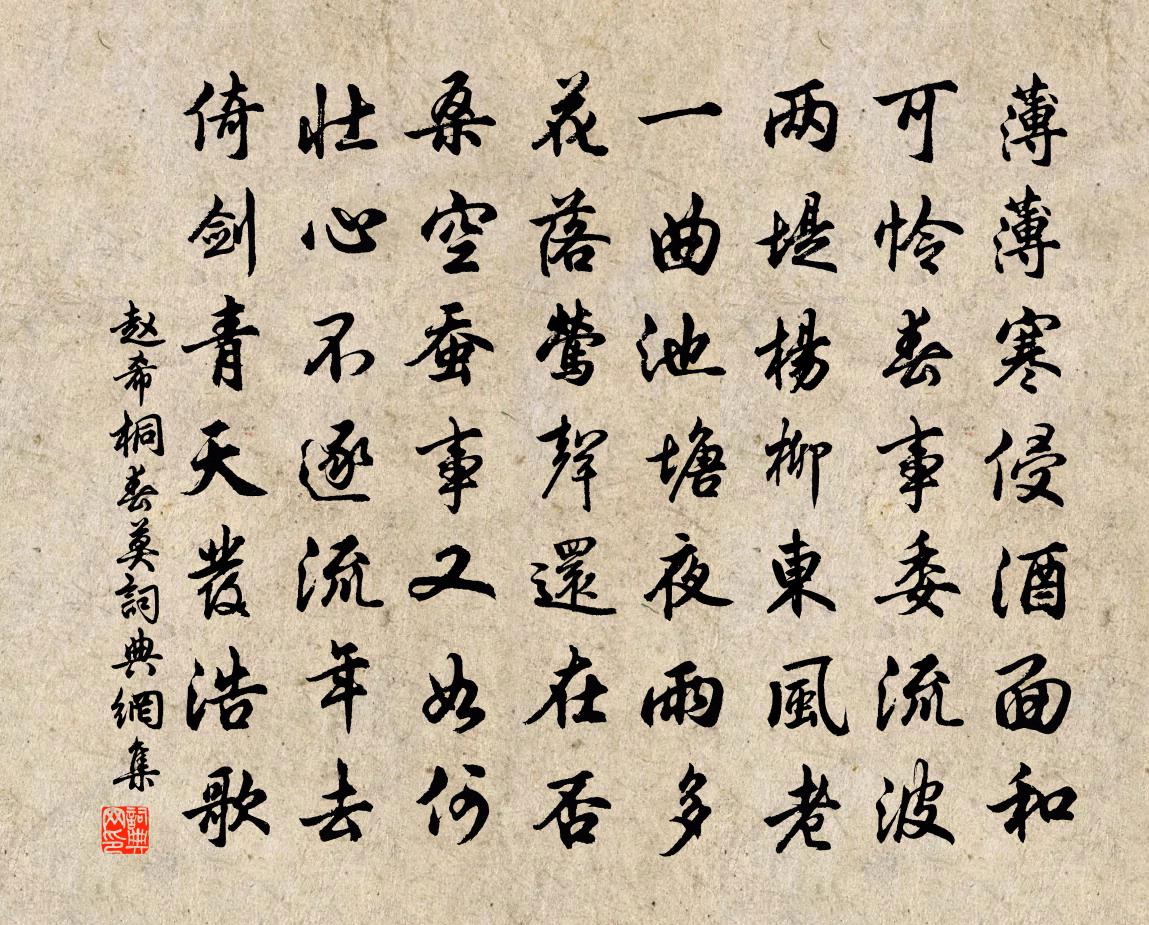 薄薄寒侵酒面和
可怜春事委流波
两堤楊柳東風老
一曲池塘夜雨多
花落鶯聲還在否
桑空蚕事又如何
壮心不逐流年去
倚剑青天發浩歌
赵希桐春莫詞典網集
詞典网印